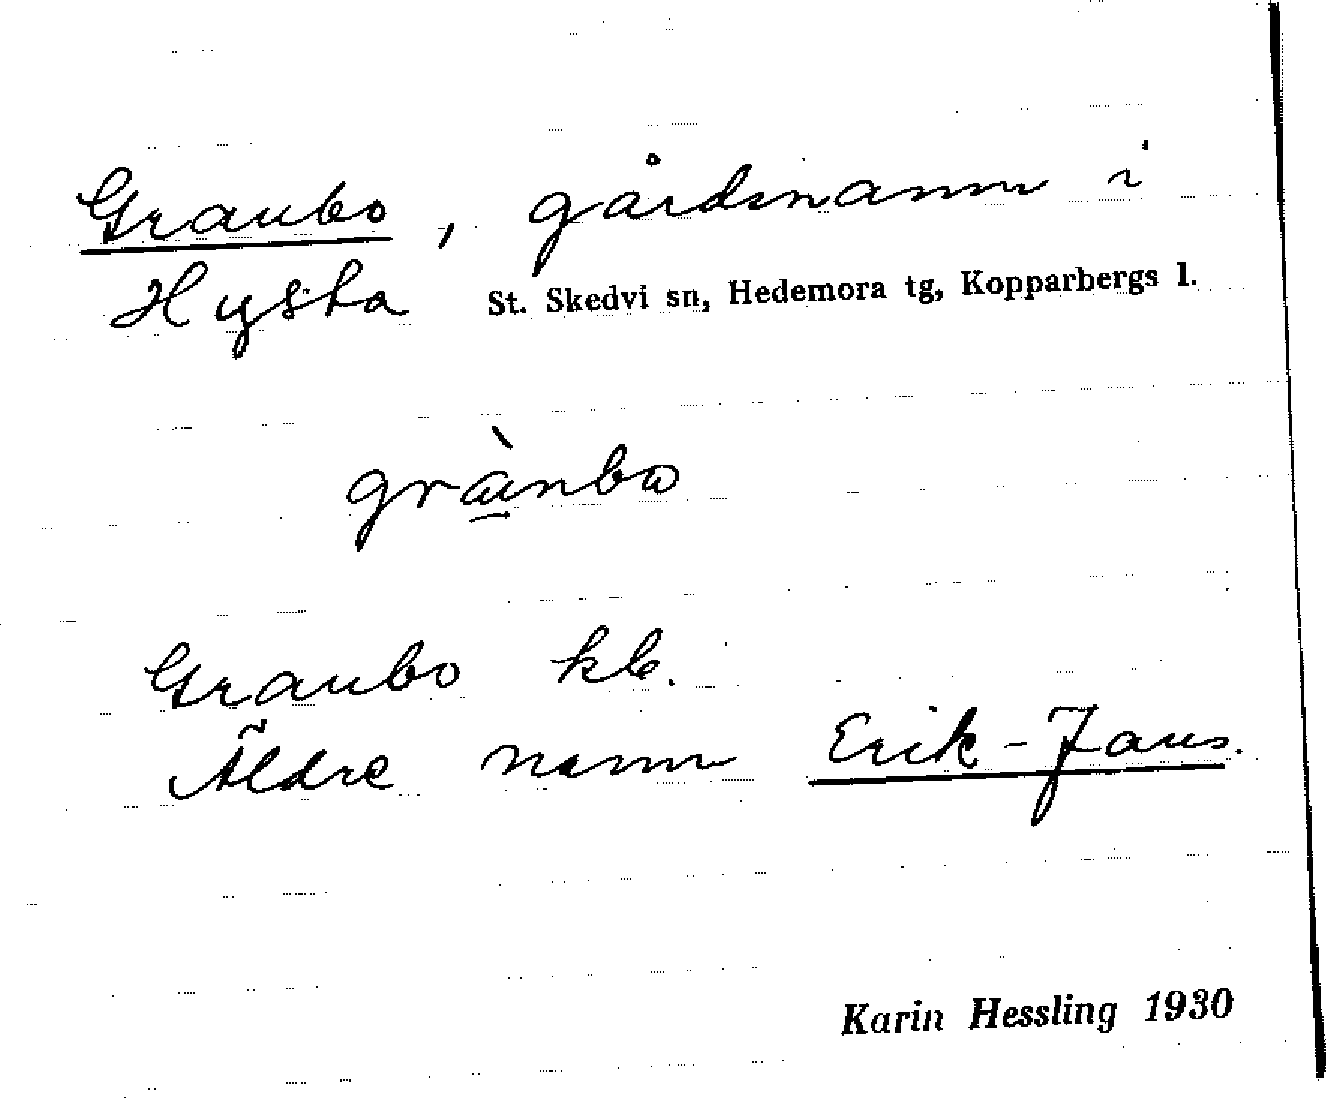 Granbo, gårdsnamn i
Hysta St. Skedvi sn, Hedemora tg, Kopparbergs l.
Granbo kb.
Äldre namn Erik-Jans.
Karin Hessling 1930